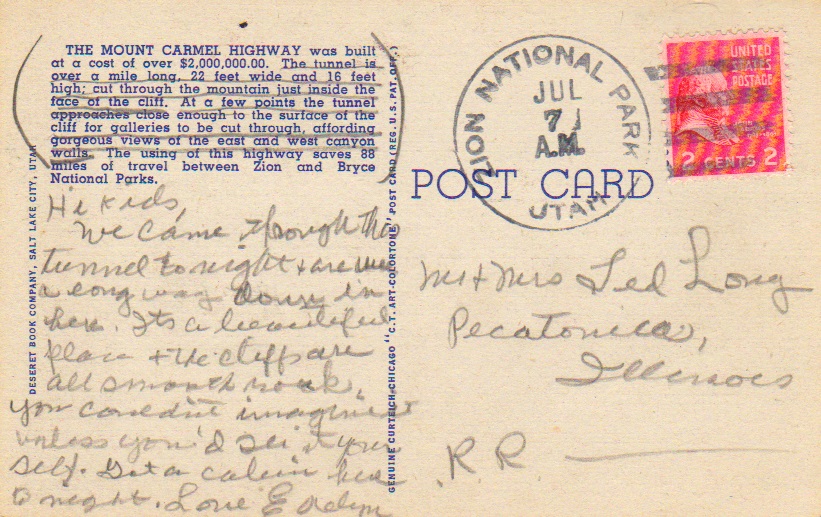 THE MOUNT CARMEL HIGHWAY was built
at a cost of over $2,000,000.00. The tunnel is
over a mile long, 22 feet wide and 16 feet
high; cut through the mountain just inside the
face of the cliff. At a few points the tunnel
approaches close enough to the surface of the
cliff for galleries to be cut through, affording
gorgeous views of the east and west canyon
walls. The using of this highway saves 88
miles of travel between Zion and Bryce
National Parks.
Hi Kids,
We came through the
tunnel tonight + are
a long way down in
here. Its a beautiful
place + the cliffs are
all smooth rock,
you couldn't imagine
unless you'd see it your
self. Got a cabin here
to night. Love Evelyn
DESERET BOOK COMPANY, SALT LAKE CITY, UTAH
GENUINE CURTEICH-CHICAGO "C.T. ART-COLORTONE" POST CARD (REG. U.S. PAT. OFF.)
POST CARD
ZION NATIONAL PARK
JUL
7
A.M.
UTAH
UNITED
STATES
POSTAGE
2 CENTS 2
Mr + Mrs Ted Long
Pecatonica,
Illinois
R.R.